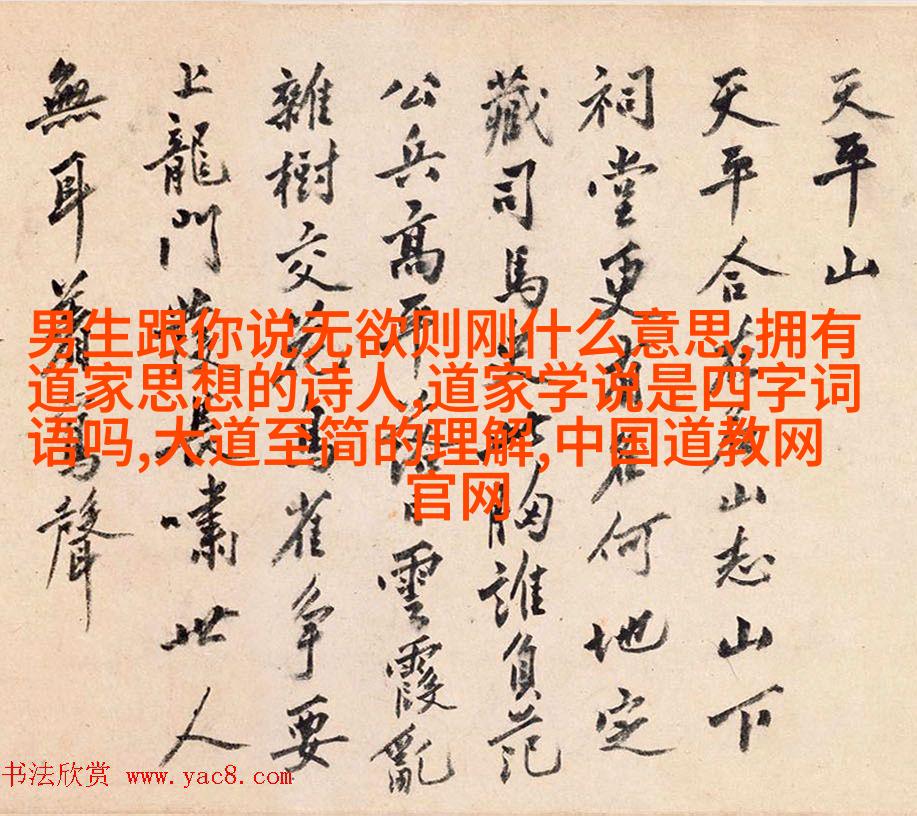 男生跟你说无欲则刚什么意思,拥有
道家思想的诗人,道家学说是四字词
语吗,大道至简的理解,中国道教网
官网
天平山
天平合山志山下
祠堂更何地定
藏司馬胸誰負范
公兵高平雲霞亂
雜樹交雀争要
上龍門長嘯世人
無耳聲
书法欣赏 www.yac8.com